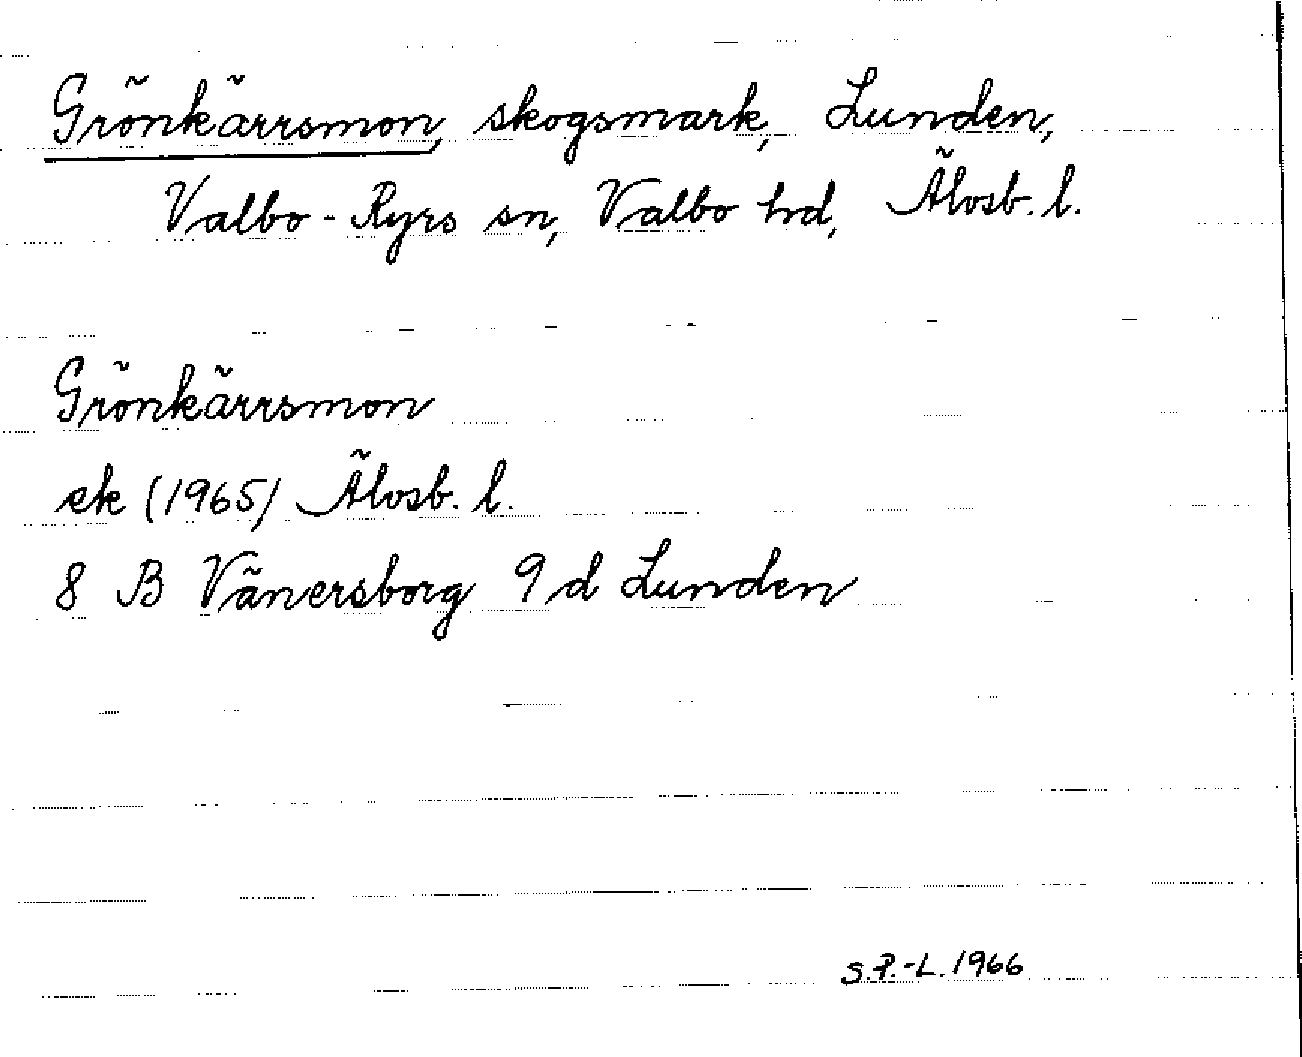 Grönkärrsmon, skogsmark, Lunden,
Valbo-Ryrs sn, Valbo hd, Älvsb. l.
Grönkärrsmon
ek (1965) Älvsb. l.
8 B Vänersborg 9 d Lunden
S.P.-L. 1966